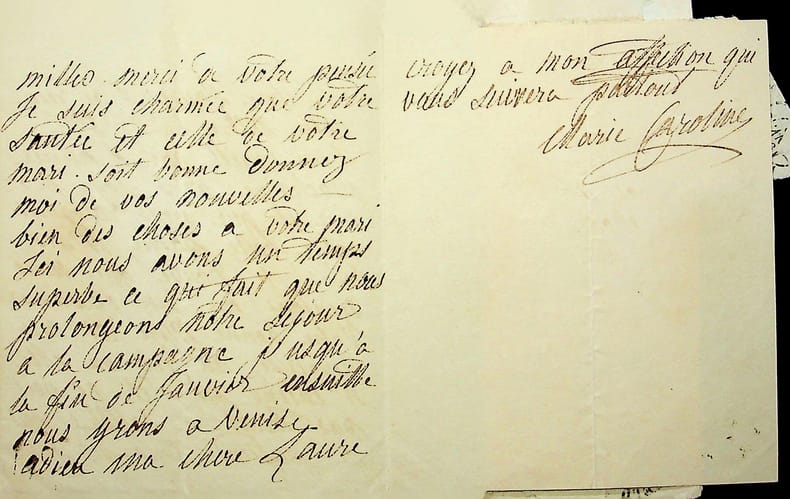 milles merci de votre pensée
Je suis charmée que votre
santée et celle de votre
mari. soit bonne donnez
moi de vos nouvelles —
bien des choses a votre mari
Ici nous avons un temps
superbe ce qui fait que nous
prolongeons notre séjour
a la campagne jusqu'à
la fin de Janvier ensuitte
nous yrons a Venise
adieu ma chere Laure
croyez a mon affection qui
vous suivera partout
Marie Caroline